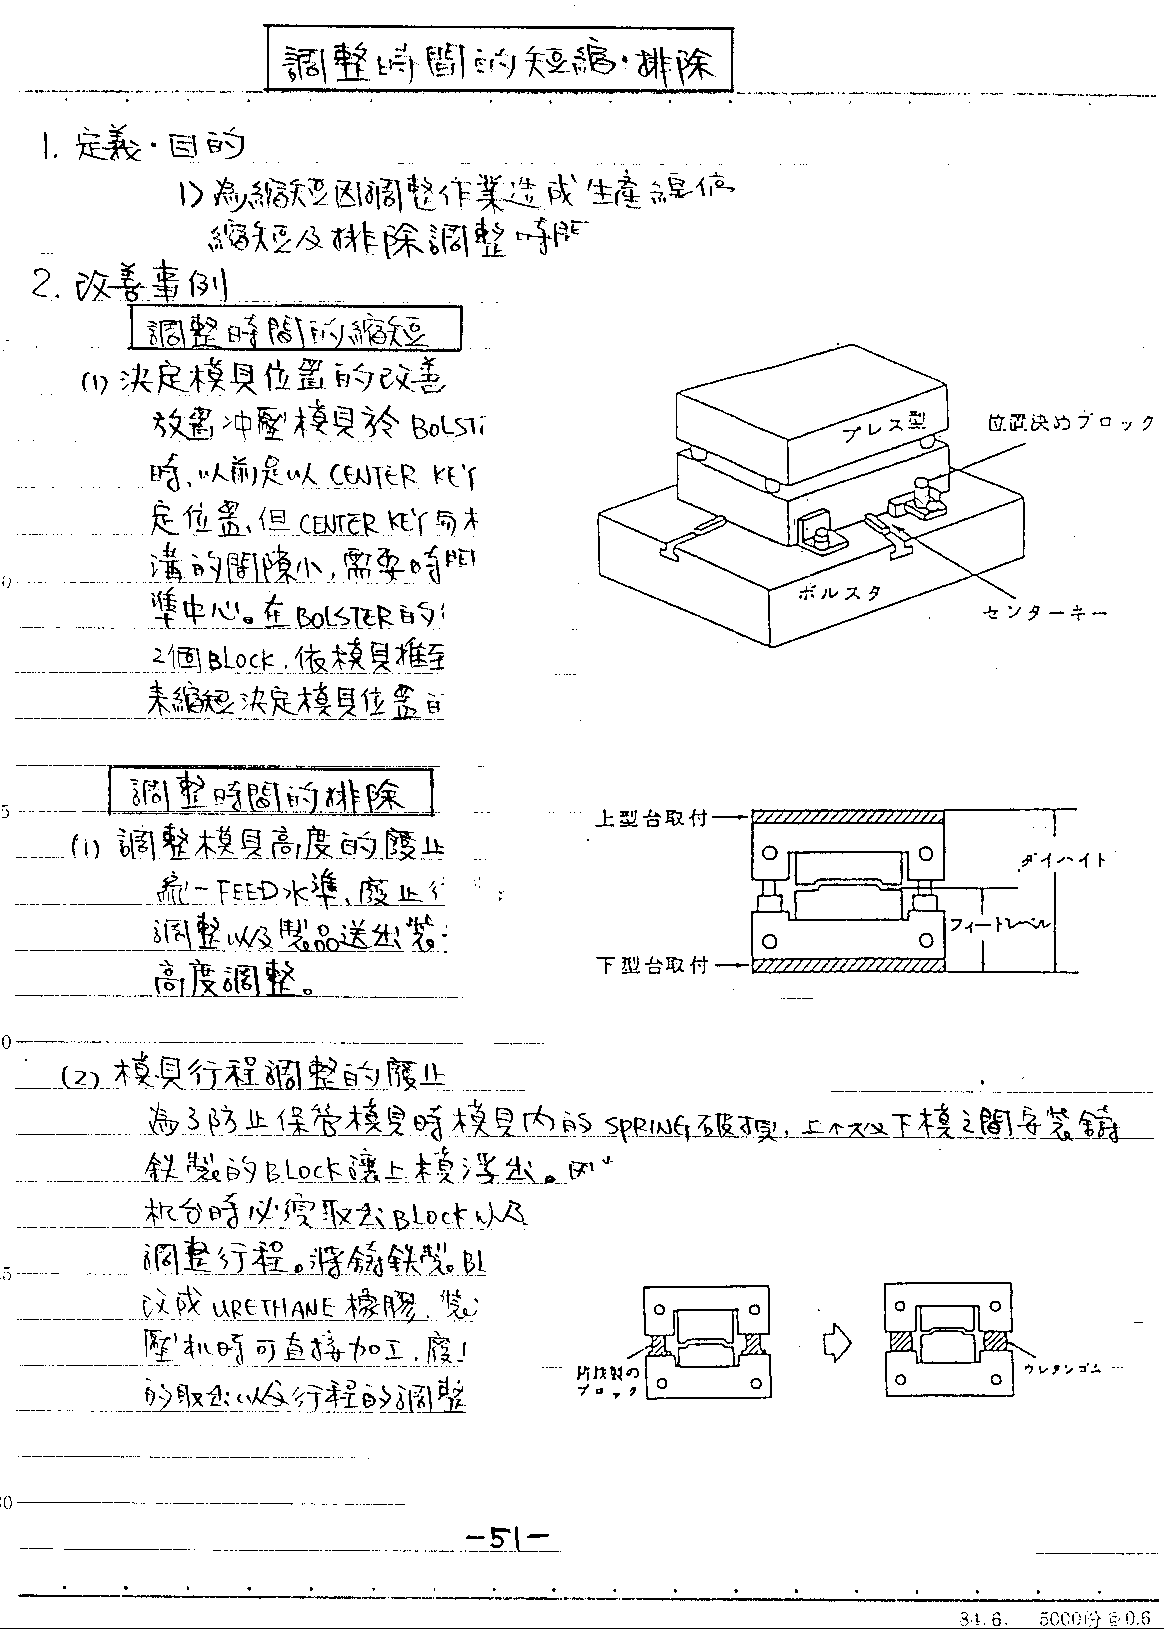 調整時間的短縮・排除
1. 定義・目的
1) 為縮短因調整作業造成生產線停
縮短及排除調整時間
2. 改善事例
調整時間的縮短
(1) 決定模具位置的改善
放置沖壓模具於 BOLST
時,以前是以 CENTER KEY
定位置,但 CENTER KEY 與
溝的間隙小,需要時間
準中心。在 BOLSTER 的
2個 BLOCK,依模具推至
來縮短決定模具位置的
プレス型
位置決めブロック
ボルスタ
センターキー
調整時間的排除
(1) 調整模具高度的廢止
統一FEED水準,廢止行
調整以及製品送出裝
高度調整。
上型台取付
ダイハイト
フィードレベル
下型台取付
(2) 模具行程調整的廢止
為了防止保管模具時模具內的 SPRING 破損,上模以下模之間安裝鑄
鉄製的 BLOCK 讓上模浮出。因
机台時必須取去 BLOCK 以及
調整行程。將鑄鉄製 BL
改成 URETHANE 橡膠,裝
壓机時可直接加工,廢止
的取出以及行程的調整
鋳鉄製の
ブロック
ウレタンゴム
-51-
84.6. 5000份@0.6